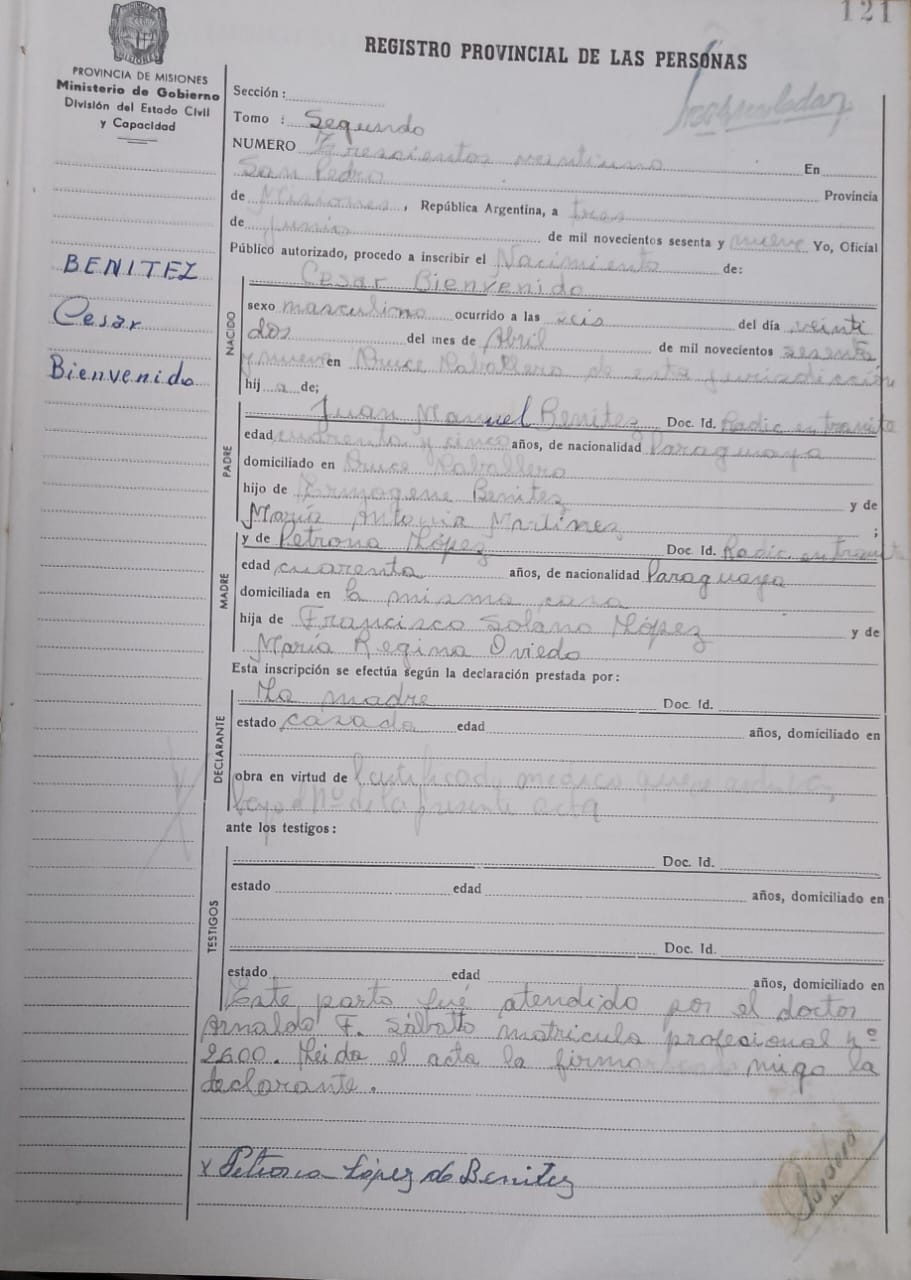 121
REGISTRO PROVINCIAL DE LAS PERSONAS
PROVINCIA DE MISIONES
Ministerio de Gobierno
División del Estado Civil
y Capacidad
BENITEZ
Cesar
Bienvenido
Sección:
Tomo : Segundo
NUMERO Trescientos veintiuno En
San Pedro Provincia
de Misiones, República Argentina, a tres
de Junio de mil novecientos sesenta y nueve Yo, Oficial
Público autorizado, procedo a inscribir el Nacimiento de:
NACIDO
Cesar Bienvenido
sexo masculino ocurrido a las seis del día veinti
dos del mes de Abril de mil novecientos sesenta
y nueve en Caballero de esta jurisdicción
hij a de;
PADRE
Juan Manuel Benitez Doc. Id. Radic en transito
edad y cinco años, de nacionalidad Paraguaya
domiciliado en Caballero
hijo de Benitez y de
María Antonia Martinez ;
MADRE
y de Petrona López Doc. Id. Radic en transit
edad cuarenta años, de nacionalidad Paraguaya
domiciliada en la misma casa
hija de Francisco Solano López y de
María Regina Oviedo
Esta inscripción se efectúa según la declaración prestada por:
DECLARANTE
La madre Doc. Id.
estado casada edad años, domiciliado en
obra en virtud de Certificado medico que
bajo el Nº de la presente acta
ante los testigos:
TESTIGOS
Doc. Id.
estado edad años, domiciliado en
Doc. Id.
estado edad años, domiciliado en
Este parto fué atendido por el doctor
Arnaldo F. Sabatto matricula profesional nº
2600. Leida el acta la firma migo la
declarante.
x Petrona López de Benitez